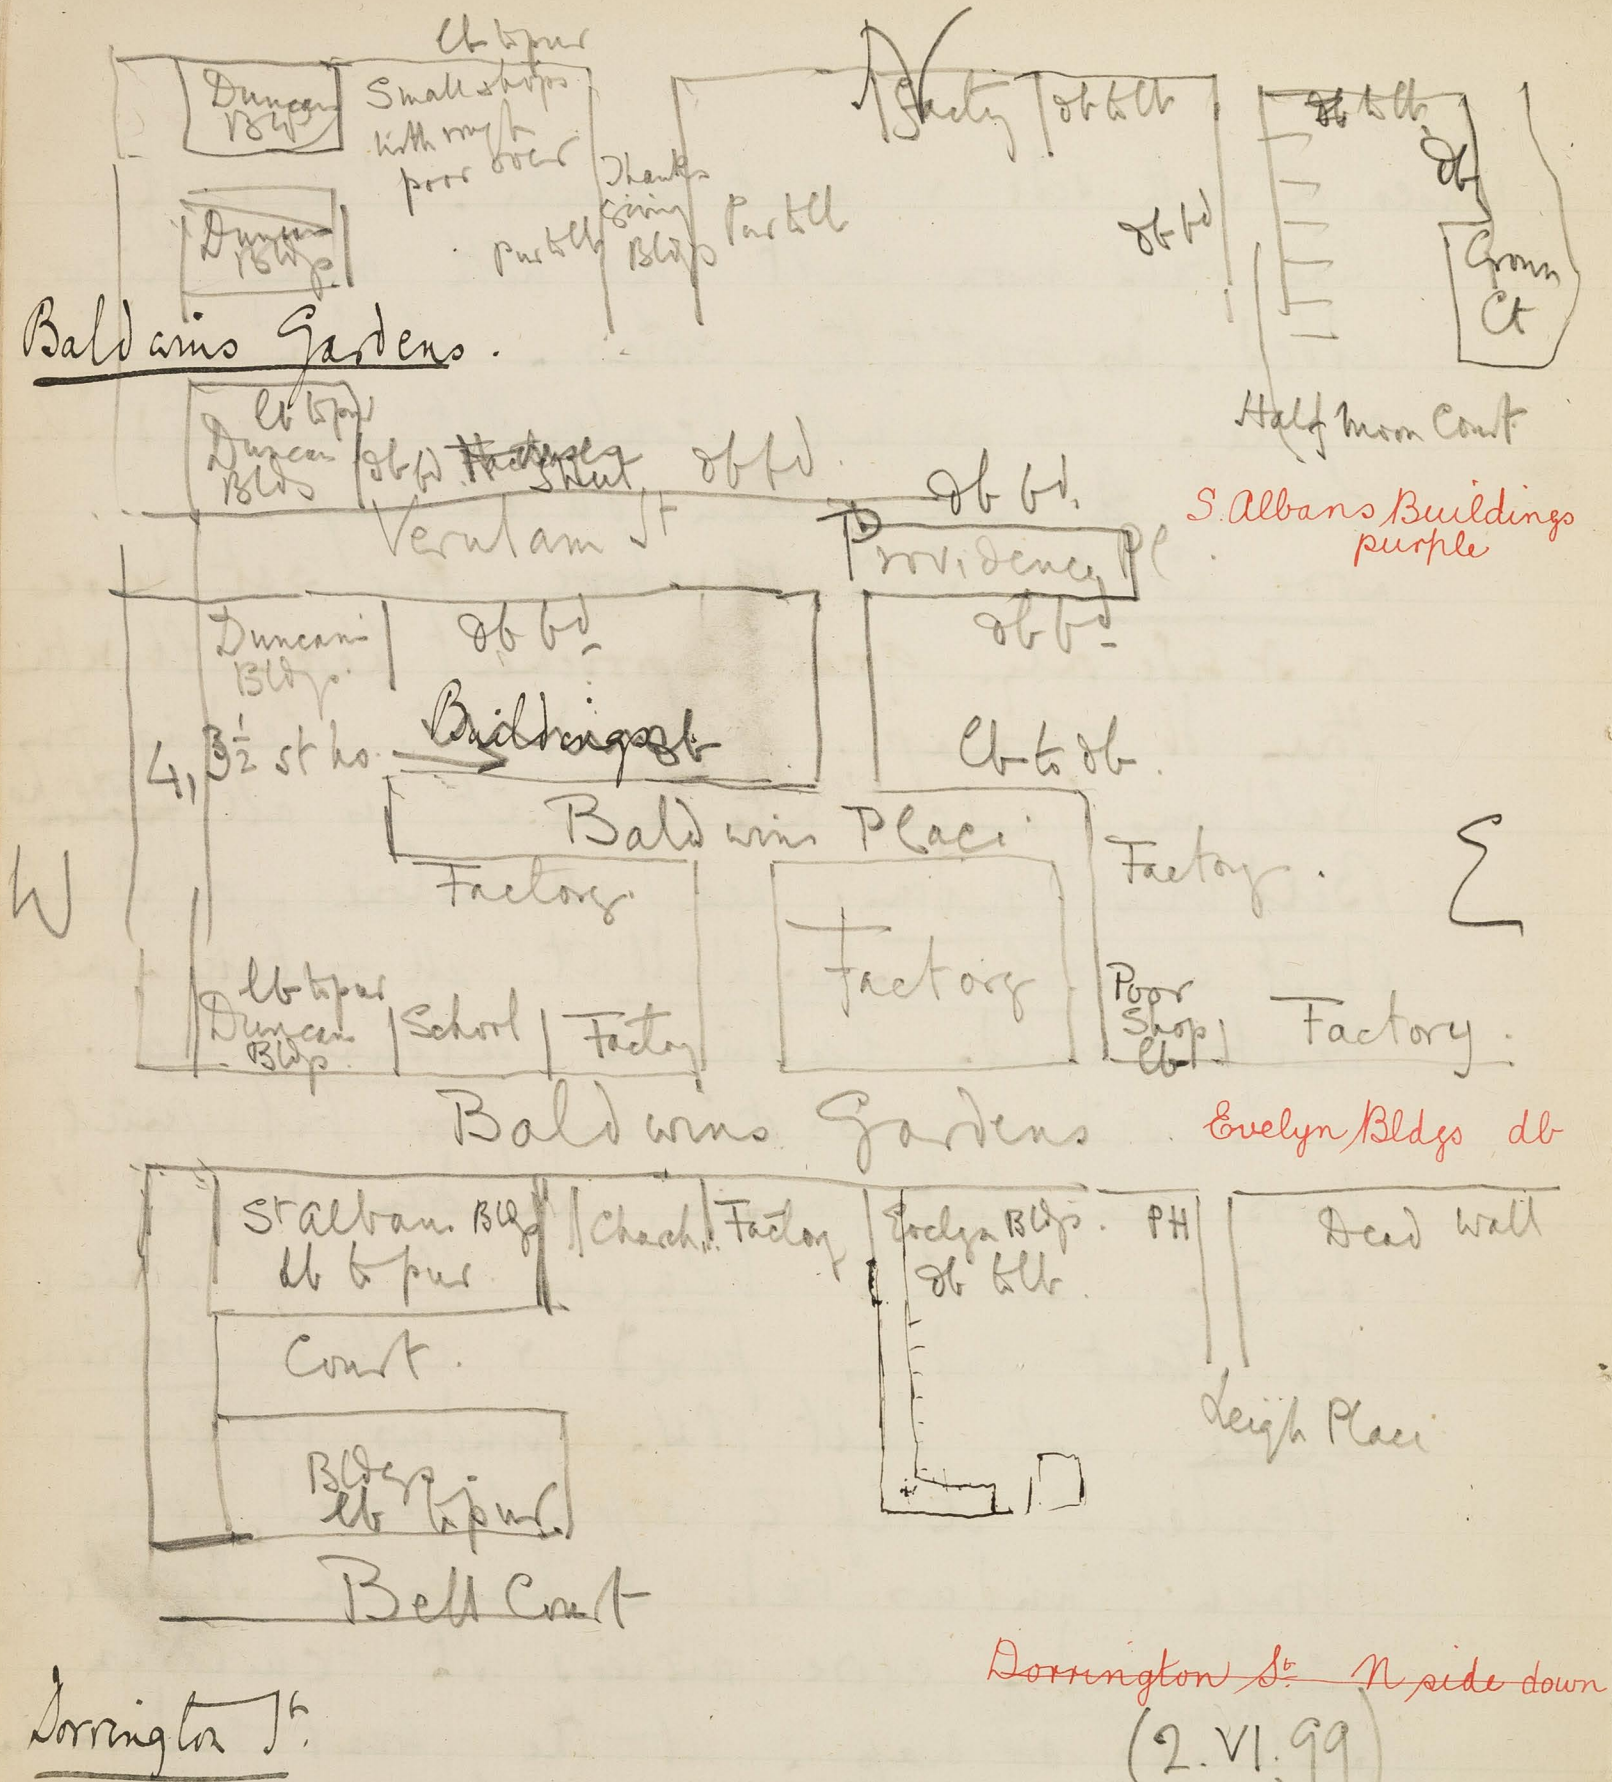 lb to pur
N
Duncan
Bldgs
Small shops
with rough
poor over
Factory
db to lb
db to lb
db
Thanks
giving
Bldgs
Duncan
Bldgs.
Pur to lb
Pur to lb
db bd
Crown
Ct
Baldwins Gardens.
Half Moon Court
lb to pur
Duncan
Bldgs
db bd
Shut
db bd.
db bd.
S. Albans Buildings
purple
Verulam St
Providence Pl.
Duncans
Bldgs.
db bd
db bd
4, 3½ st ho.
Buildings db
lb to db.
Baldwins Place
W
Factory.
Factory.
E
Factory
lb to pur
Duncan
Bldgs.
School
Factory
Poor
Shop
lb
Factory.
Baldwins Gardens
Evelyn Bldgs db
St Albans Bldgs
db to pur
Church.
Factory
Evelyn Bldgs.
db to lb.
PH
Dead Wall
Court.
Leigh Place
Bldgs.
lb to pur.
Bell Court
Dorrington St. N side down
Dorrington St.
(2.VI.99)